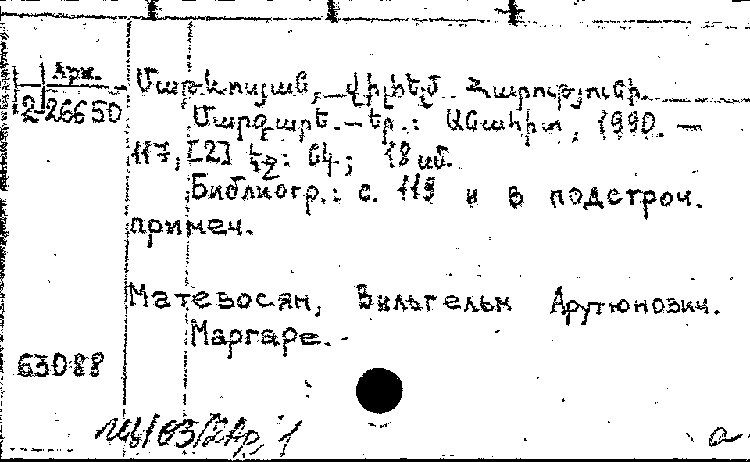 Арм.
2-26650
Մաթևոսյան, Վիլհելմ Հարությունի.
Մարգարե. – Եր.: Անահիտ, 1990. –
117, [2] էջ: նկ; 18 սմ.
Библиогр.: с. 113 и в подстроч.
примеч.
Матевосян, Вильгельм Арутюнович.
Маргаре.
63088
а